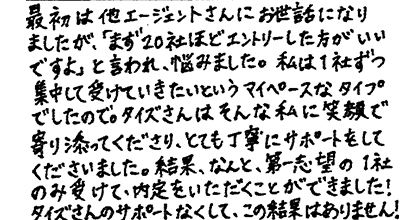 最初は他エージェントさんにお世話になり
ましたが、「まず20社ほどエントリーした方がいい
ですよ」と言われ、悩みました。私は1社ずつ
集中して受けていきたいというマイペースなタイプ
でしたので。タイズさんはそんな私に笑顔で
寄り添ってくださり、とても丁寧にサポートをして
くださいました。結果、なんと、第一志望の1社
のみ受けて、内定をいただくことができました!
タイズさんのサポートなくして、この結果はありません!